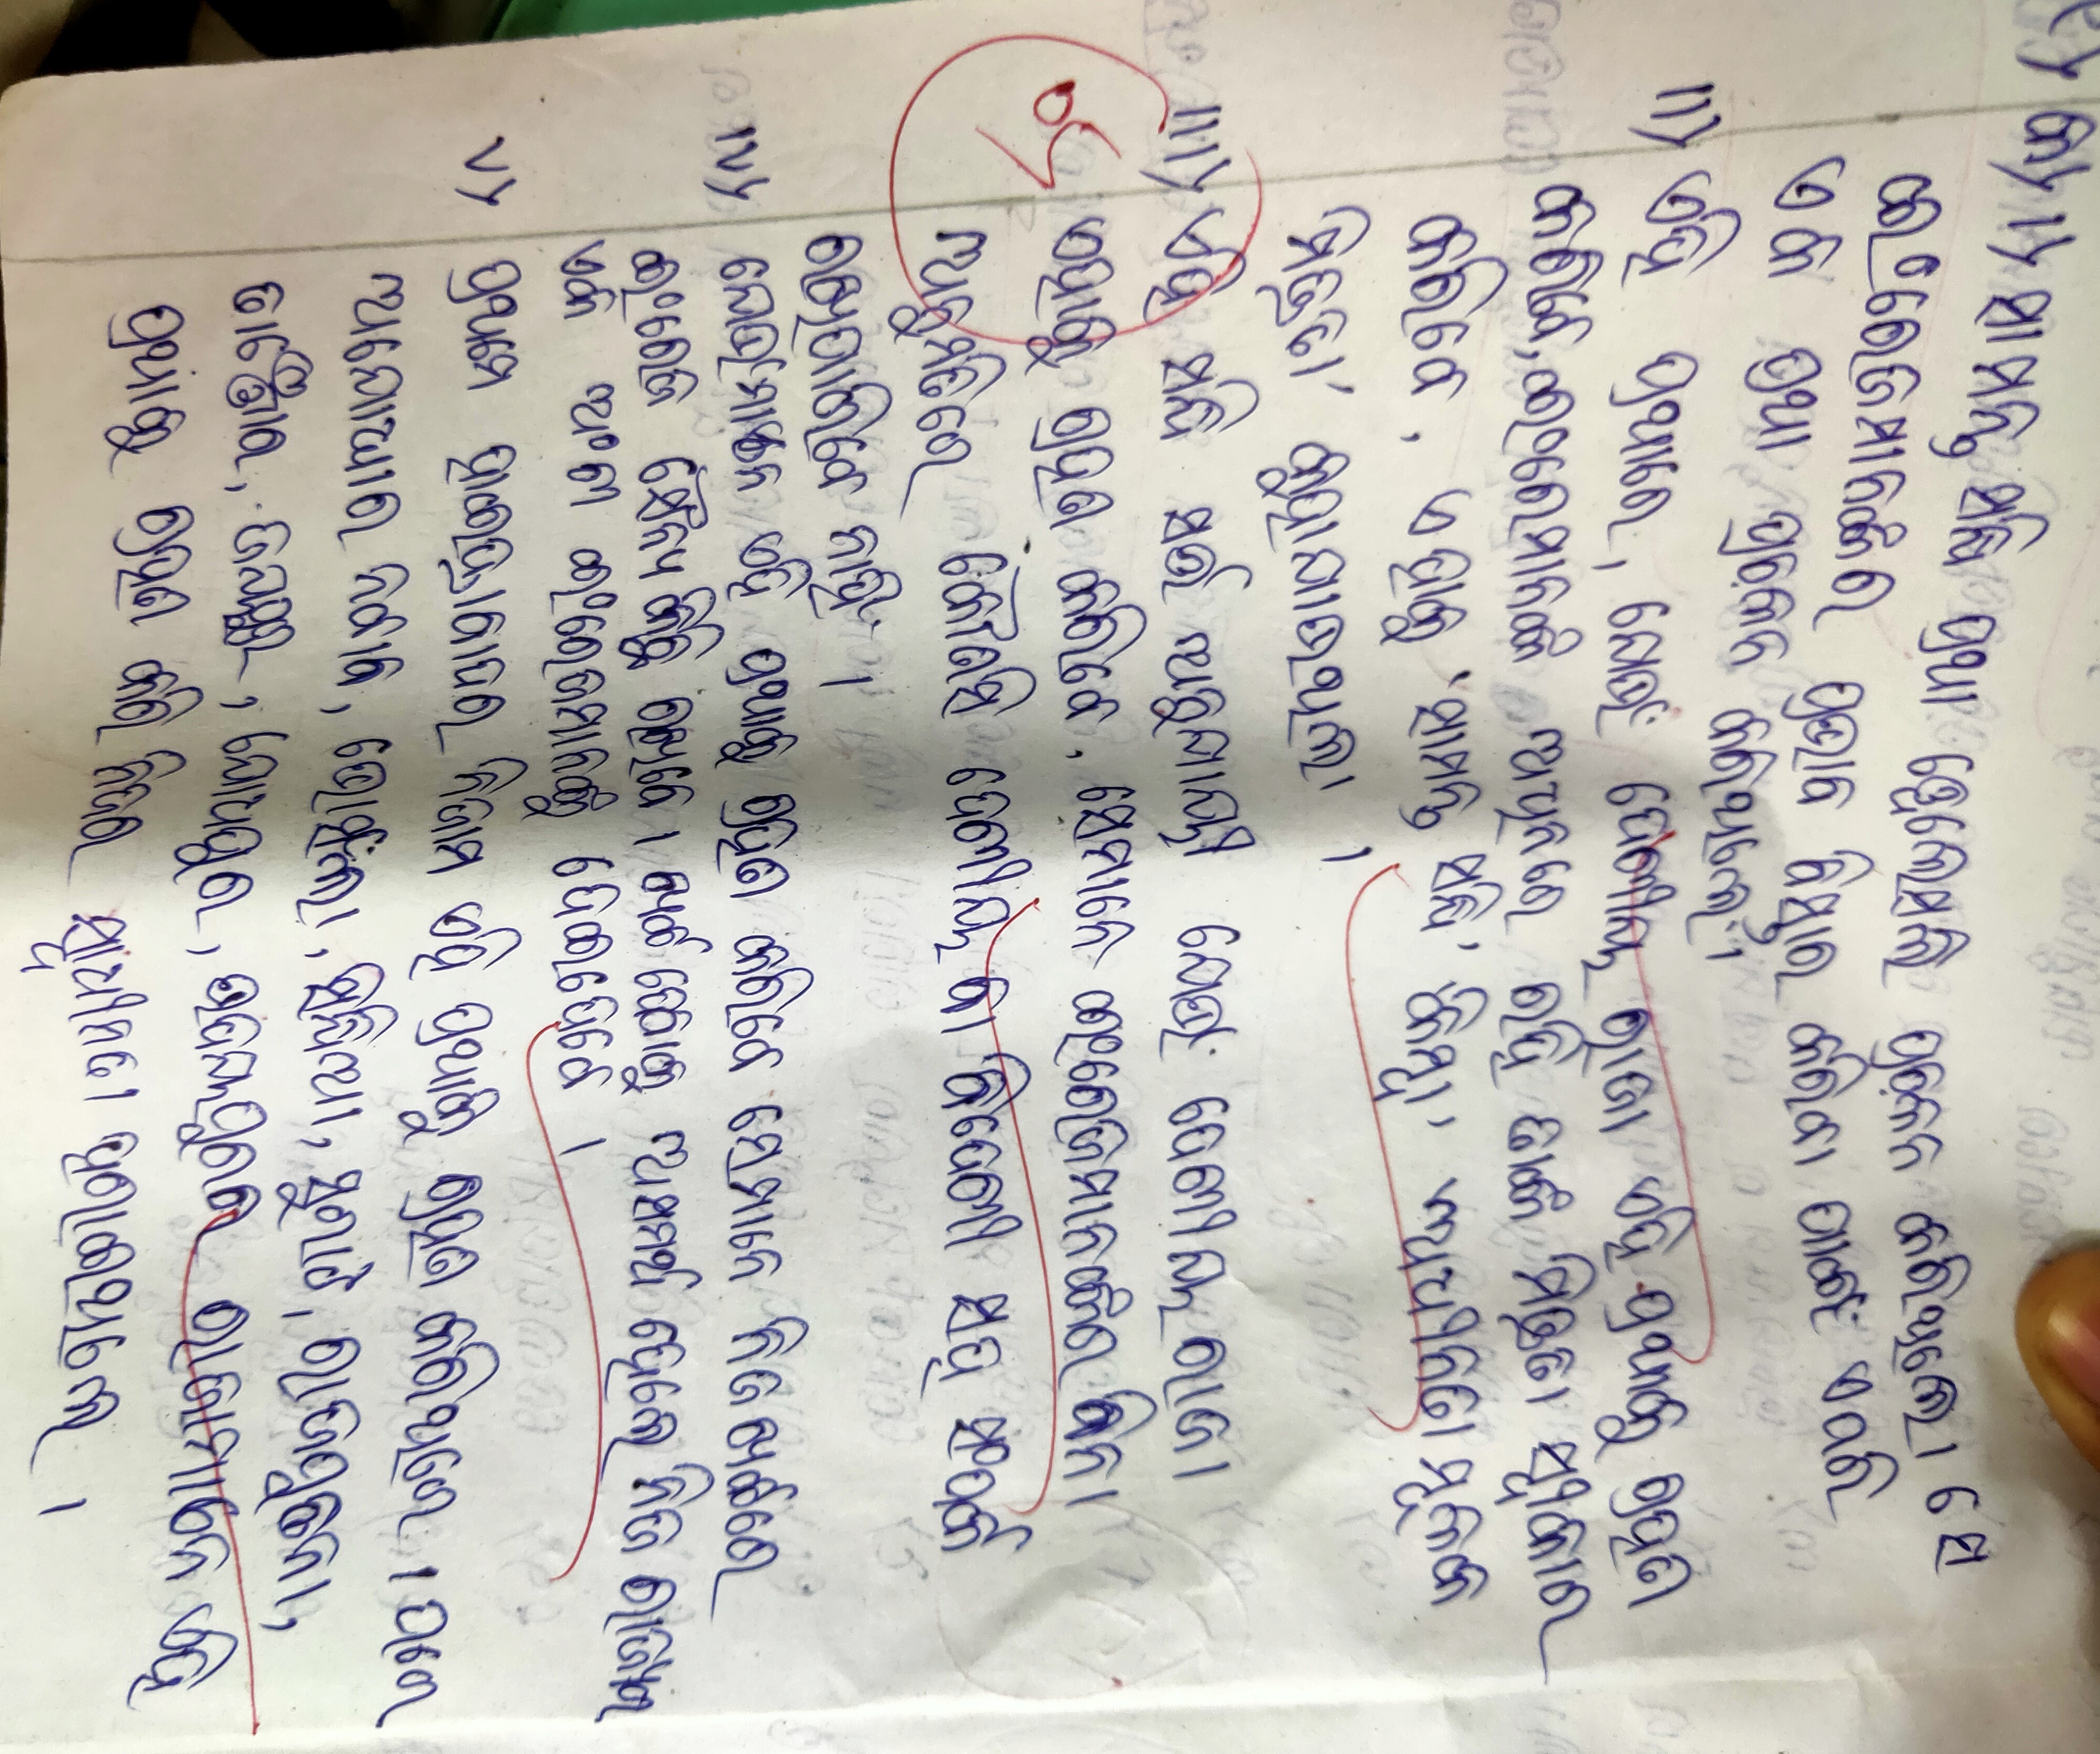 ୧) କ) ।) ସାମନ୍ତ ସନ୍ଧି ପ୍ରଥା ୱେଲେସଲି ପ୍ରଚଳନ କରିଥିଲେ। ସେ
ଇଂରେଜମାନଙ୍କର ପ୍ରଭାବ ବିସ୍ତାର କରିବା ପାଇଁ ଏପରି
ଏକ ପ୍ରଥା ପ୍ରଚଳନ କରିଥିଲେ।
।।) ଏହି ପ୍ରଥାରେ, ଯେଉଁ ଦେଶୀୟ ରାଜା ଏହି ପ୍ରଥାକୁ ଗ୍ରହଣ
କରିବେ, ଇଂରେମାନଙ୍କ ଅଧିନରେ ରହି ତାଙ୍କ ମିତ୍ରତା ସ୍ୱୀକାର
କରିବେ, ଏହାକୁ 'ସାମନ୍ତ ସନ୍ଧି' କିମ୍ବା 'ଅଧୀନତା ମୂଳକ
ମିତ୍ରତା' କୁହାଯାଉଥିଲା ।
।।।) ଏହି ସନ୍ଧି ସର୍ତ୍ତ ଅନୁଯାୟୀ ଯେଉଁ ଦେଶୀୟ ରାଜା
ଏହାକୁ ଗ୍ରହଣ କରିବେ, ସେମାନେ ଇଂରେଜମାନଙ୍କର ବିନା
ଅନୁମତିରେ କୌଣସି ଦେଶୀୟ ବା ବିଦେଶୀ ସହ ସଂପର୍କ
ରଖିପାରିବେ ନାହିଁ ।
IV) ଯେଉଁମାନେ ଏହି ପ୍ରଥାକୁ ଗ୍ରହଣ କରିବେ ସେମାନେ ନିଜ ଖର୍ଚ୍ଚରେ
ଇଂରେଜ ସୈନ୍ୟ କିଛି ରଖିବେ । ଖର୍ଚ୍ଚ ଦେବାକୁ ଅସମର୍ଥ ହେଲେ ନିଜ ରାଜ୍ୟର
ଏକ ଅଂଶ ଇଂରେଜମାନଙ୍କୁ ଦେଇଦେବେ ।
V) ପ୍ରଥମେ ହାଇଦ୍ରାବାଦର ନିଜାମ ଏହି ପ୍ରଥାକୁ ଗ୍ରହଣ କରିଥିଲେ । ପରେ
ଅଯୋଧ୍ୟାର ନବାବ, ଭୋଁସଲା, ସିନ୍ଧିଆ, ସୁରାଟ, ରାଜପୁତନା,
ତାଞ୍ଜୋର, ଜୟପୁର, ଯୋଧପୁର, ଉଦୟପୁରର ରାଜାମାନେ ଏହି
ପ୍ରଥାକୁ ଗ୍ରହଣ କରି ନିଜର ସ୍ୱାଧୀନତା ହରାଇଥିଲେ ।